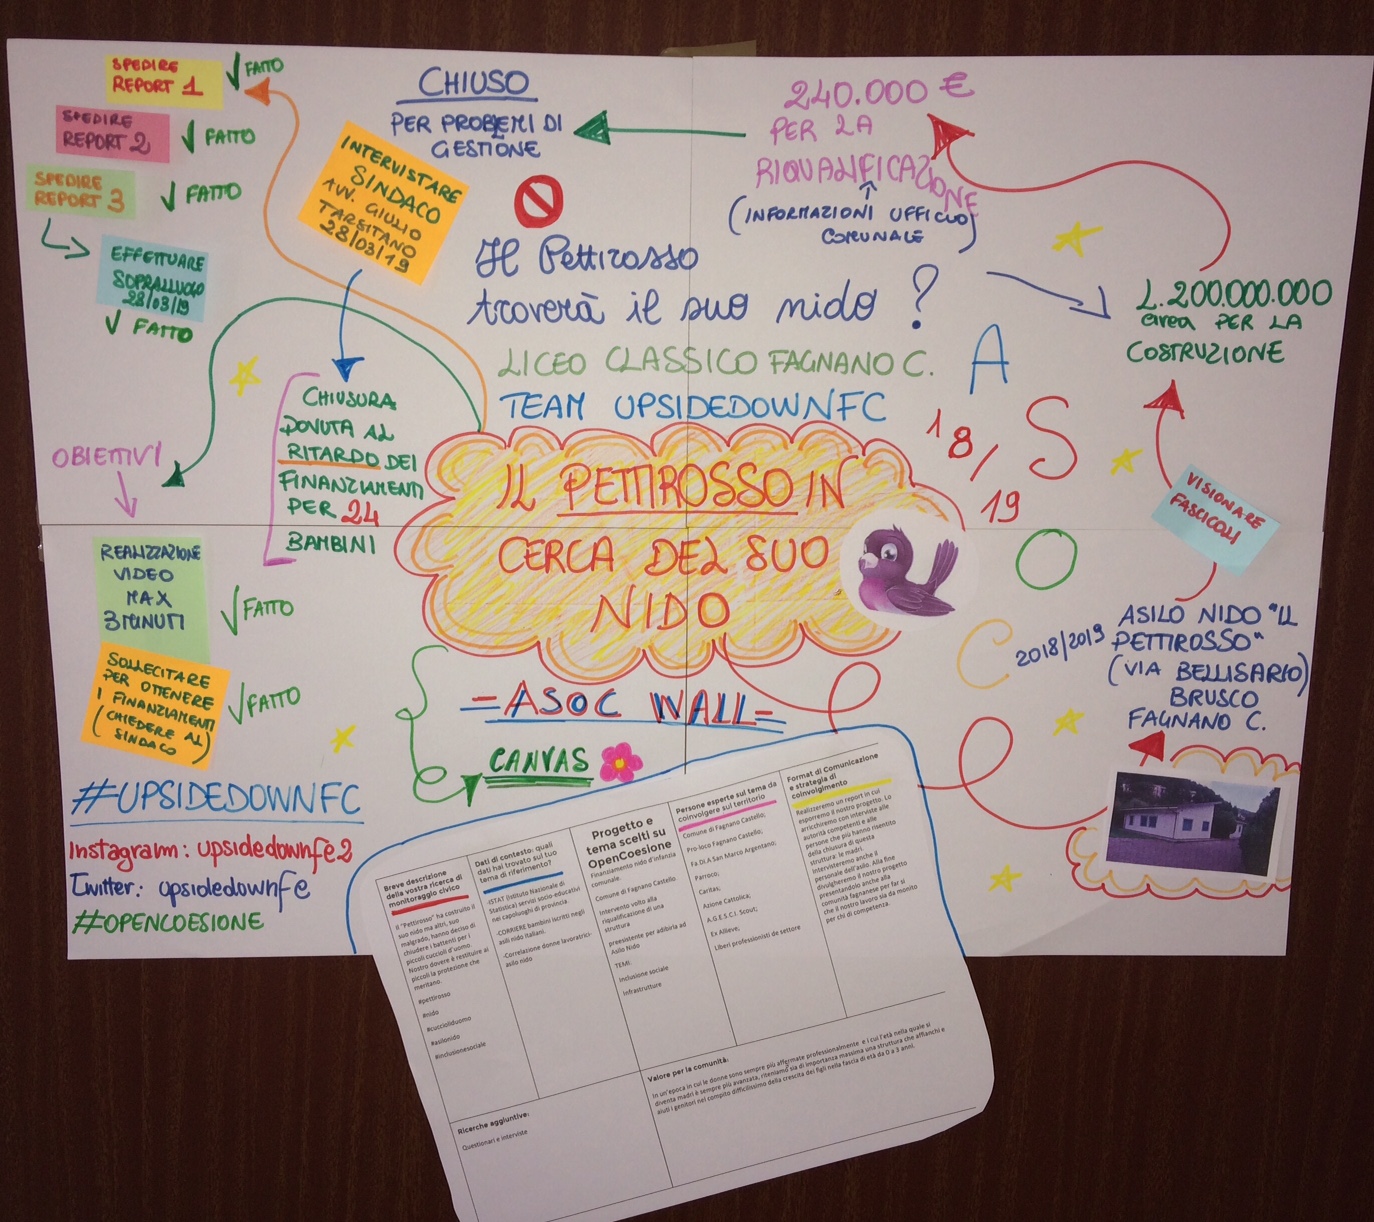 SPEDIRE
REPORT 1
FATTO
SPEDIRE
REPORT 2
FATTO
SPEDIRE
REPORT 3
FATTO
EFFETTUARE
SOPRALLUOGO
28/03/19
FATTO
INTERVISTARE
SINDACO
AVV. GIULIO
TARSITANO
28/03/19
CHIUSO
PER PROBLEMI DI
GESTIONE
240.000 €
PER LA
RIQUALIFICAZIONE
(INFORMAZIONI UFFICIO
COMUNALE)
Il Pettirosso
troverà il suo nido ?
LICEO CLASSICO FAGNANO C.
TEAM UPSIDEDOWNFC
L.200.000.000
area PER LA
COSTRUZIONE
A
S
O
C
18/
19
2018/2019
VISIONARE
FASCICOLI
CHIUSURA
DOVUTA AL
RITARDO DEI
FINANZIAMENTI
PER 24
BAMBINI
OBIETTIVI
IL PETTIROSSO IN
CERCA DEL SUO
NIDO
REALIZZAZIONE
VIDEO
MAX
3 MINUTI
FATTO
SOLLECITARE
PER OTTENERE
I FINANZIAMENTI
(CHIEDERE AL
SINDACO)
FATTO
ASILO NIDO "IL
PETTIROSSO"
(VIA BELLISARIO)
BRUSCO
FAGNANO C.
=ASOC WALL=
CANVAS
#UPSIDEDOWNFC
Instagram: upsidedownfc2
Twitter: upsidedownfc
#OPENCOESIONE
Breve descrizione
della vostra ricerca di
monitoraggio civico
Il "Pettirosso" ha costruito il
suo nido ma altri, suo
malgrado, hanno deciso di
chiudere i battenti per i
piccoli cuccioli d'uomo.
Nostro dovere è restituire ai
piccoli la protezione che
meritano.
#pettirosso
#nido
#cucciolidduomo
#asilonido
#inclusionesociale
Dati di contesto: quali
dati hai trovato sul tuo
tema di riferimento?
-ISTAT (Istituto Nazionale di
Statistica) servizi socio-educativi
nei capoluoghi di provincia.
-CORRIERE bambini iscritti negli
asili nido italiani.
-Correlazione donne lavoratrici-
asilo nido
Progetto e
tema scelti su
OpenCoesione
Finanziamento nido d'infanzia
comunale.
Comune di Fagnano Castello
Intervento volto alla
riqualificazione di una
struttura
preesistente per adibirla ad
Asilo Nido
TEMI:
Inclusione sociale
Infrastrutture
Persone esperte sul tema da
coinvolgere sul territorio
Comune di Fagnano Castello;
Pro-loco Fagnano Castello;
Fa.Di.A San Marco Argentano;
Parroco;
Caritas;
Azione Cattolica;
A.G.E.S.C.I. Scout;
Ex Allieve;
Liberi professionisti de settore
Format di Comunicazione
e strategia di
coinvolgimento
Realizzeremo un report in cui
esporremo il nostro progetto. Lo
arricchiremo con interviste alle
autorità competenti e alle
persone che più hanno risentito
della chiusura di questa
struttura: le madri.
Intervisteremo anche il
personale dell'asilo. Alla fine
divulgheremo il nostro progetto
presentandolo anche alla
comunità fagnanese per far sì
che il nostro lavoro sia da monito
per chi di competenza.
Ricerche aggiuntive:
Questionari e interviste
Valore per la comunità:
In un'epoca in cui le donne sono sempre più affermate professionalmente e i cui l'età nella quale si
diventa madri è sempre più avanzata, riteniamo sia di importanza massima una struttura che affianchi e
aiuti i genitori nel compito difficilissimo della crescita dei figli nella fascia di età da 0 a 3 anni.